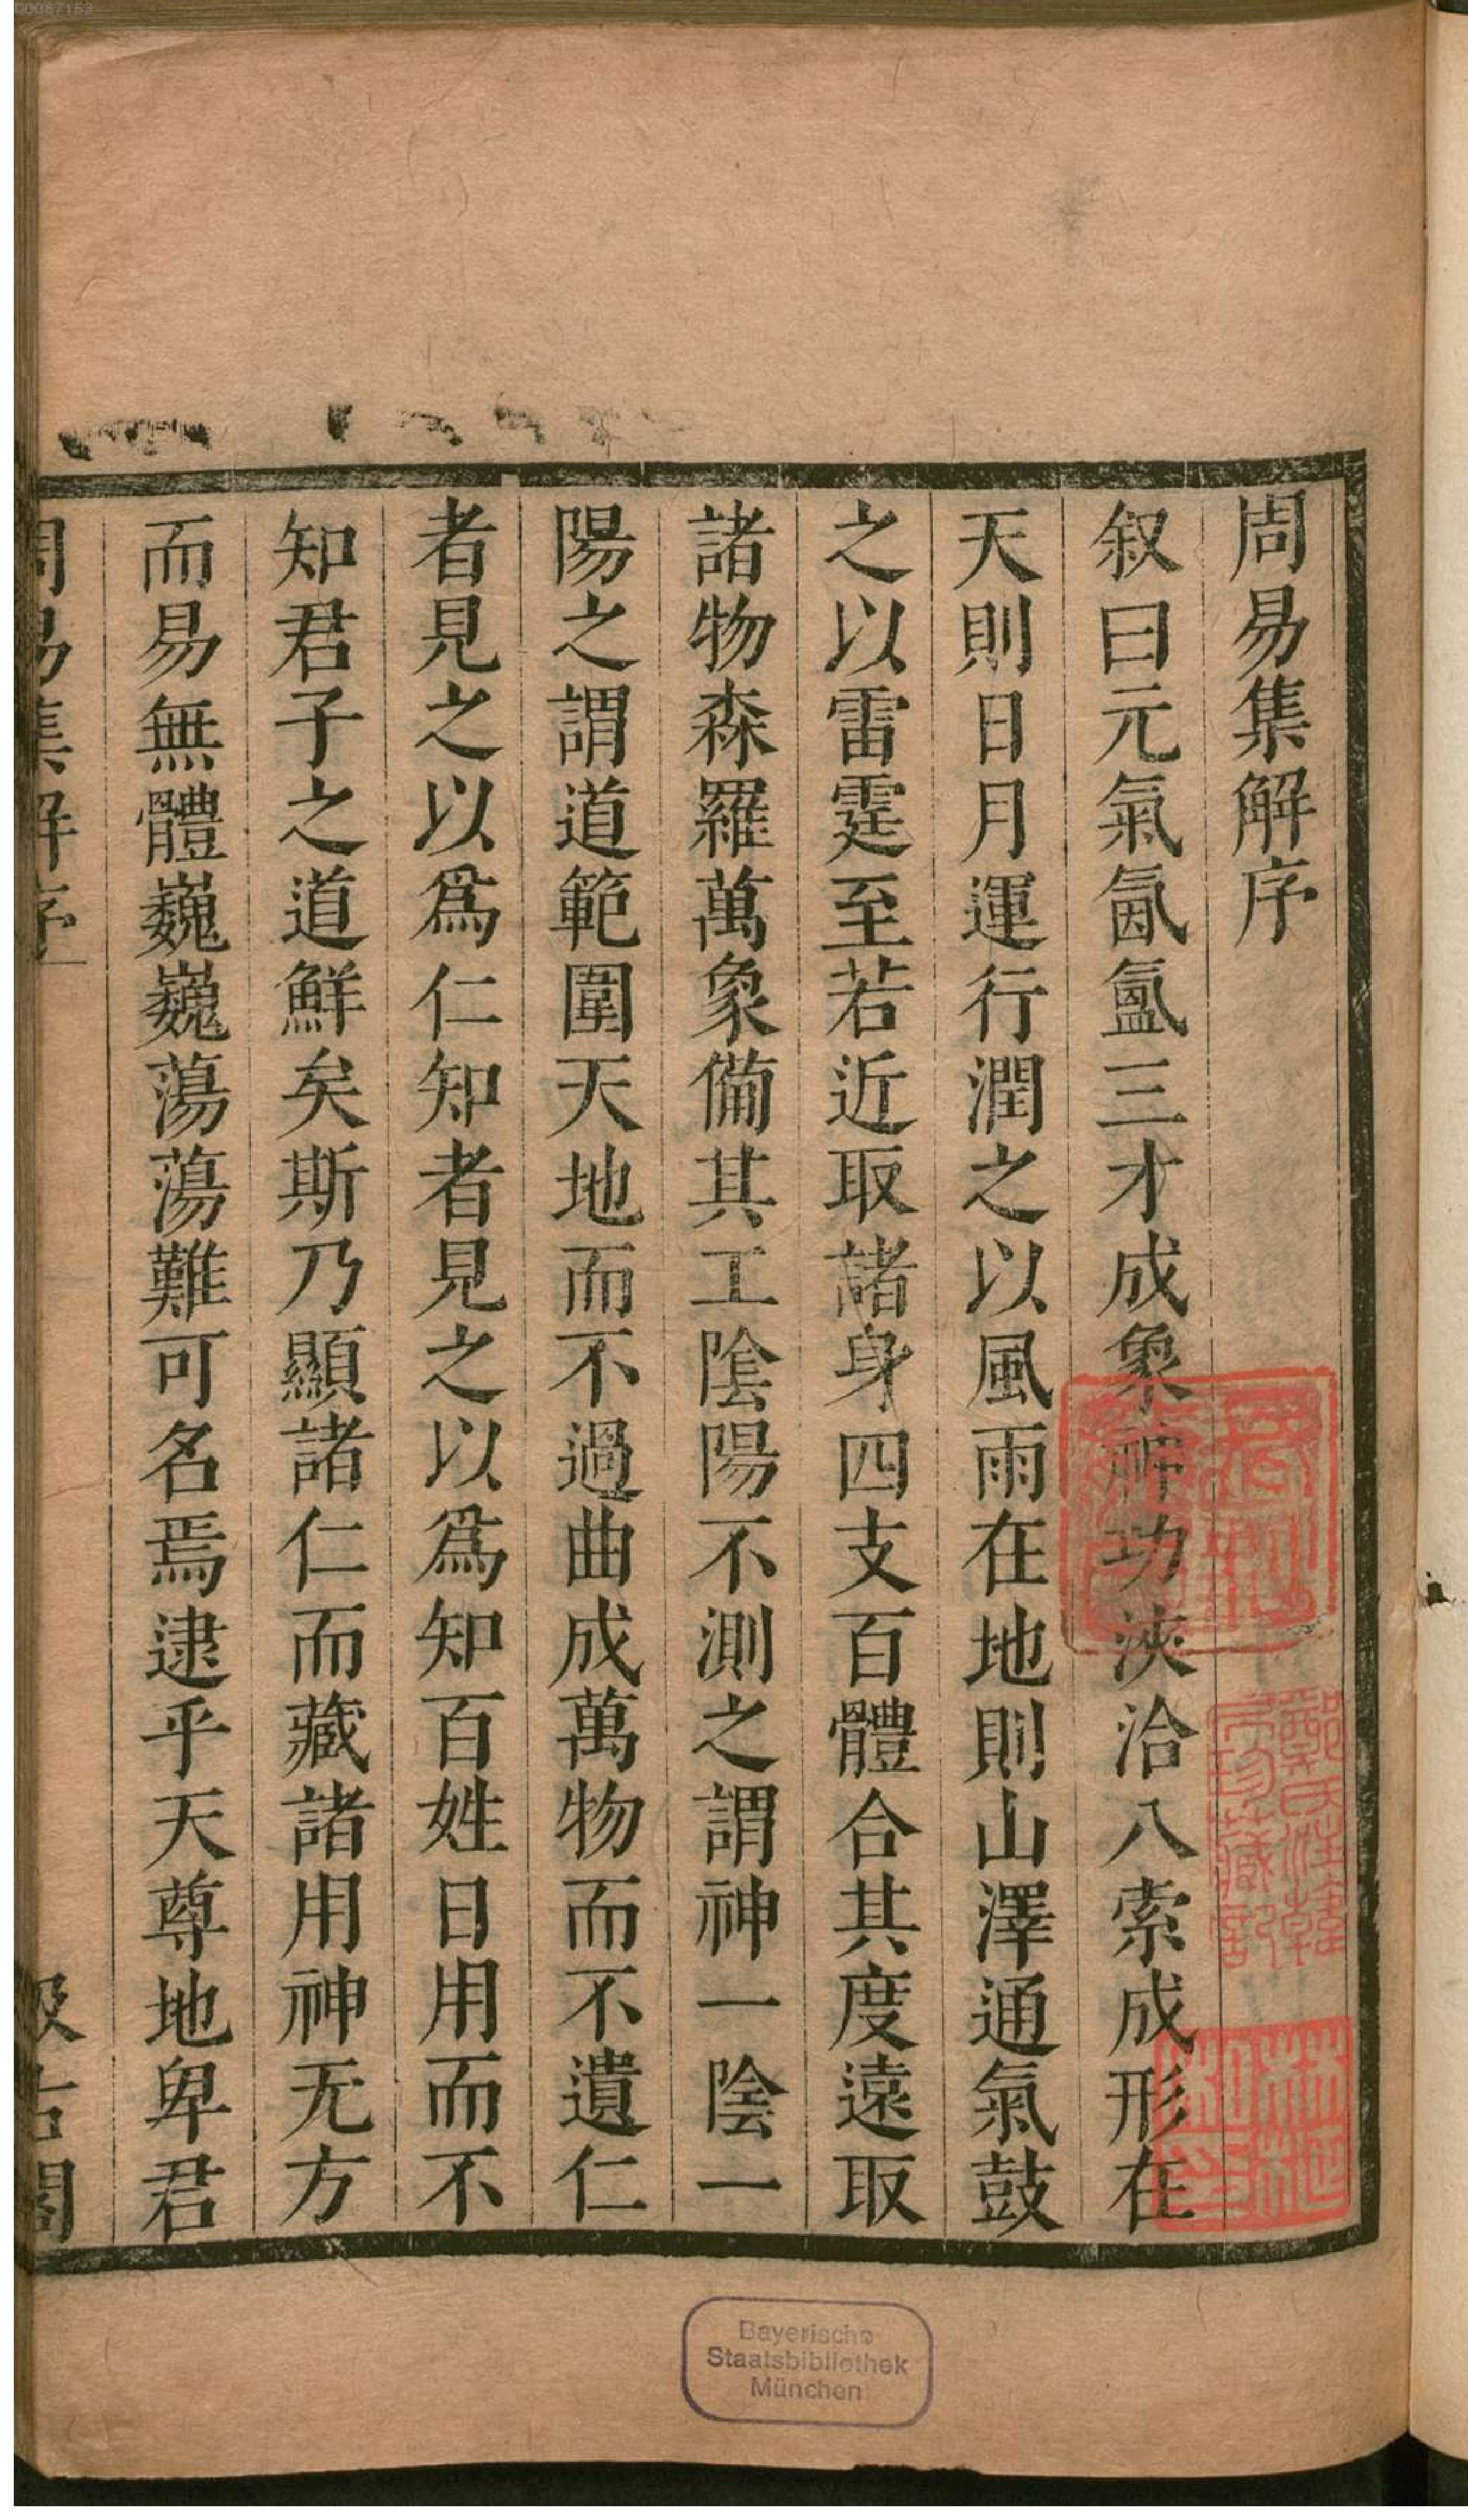 周易集解序
叙曰元氣氤氳三才成象神功浹洽八索成形在
天則日月運行潤之以風雨在地則山澤通氣鼓
之以雷霆至若近取諸身四支百體合其度遠取
諸物森羅萬象備其工陰陽不測之謂神一陰一
陽之謂道範圍天地而不過曲成萬物而不遺仁
者見之以爲仁知者見之以爲知百姓日用而不
知君子之道鮮矣斯乃顯諸仁而藏諸用神无方
而易無體巍巍蕩蕩難可名焉逮乎天尊地卑君
周易集解序 一
汲古閣
Bayerische
Staatsbibliothek
München
00087153